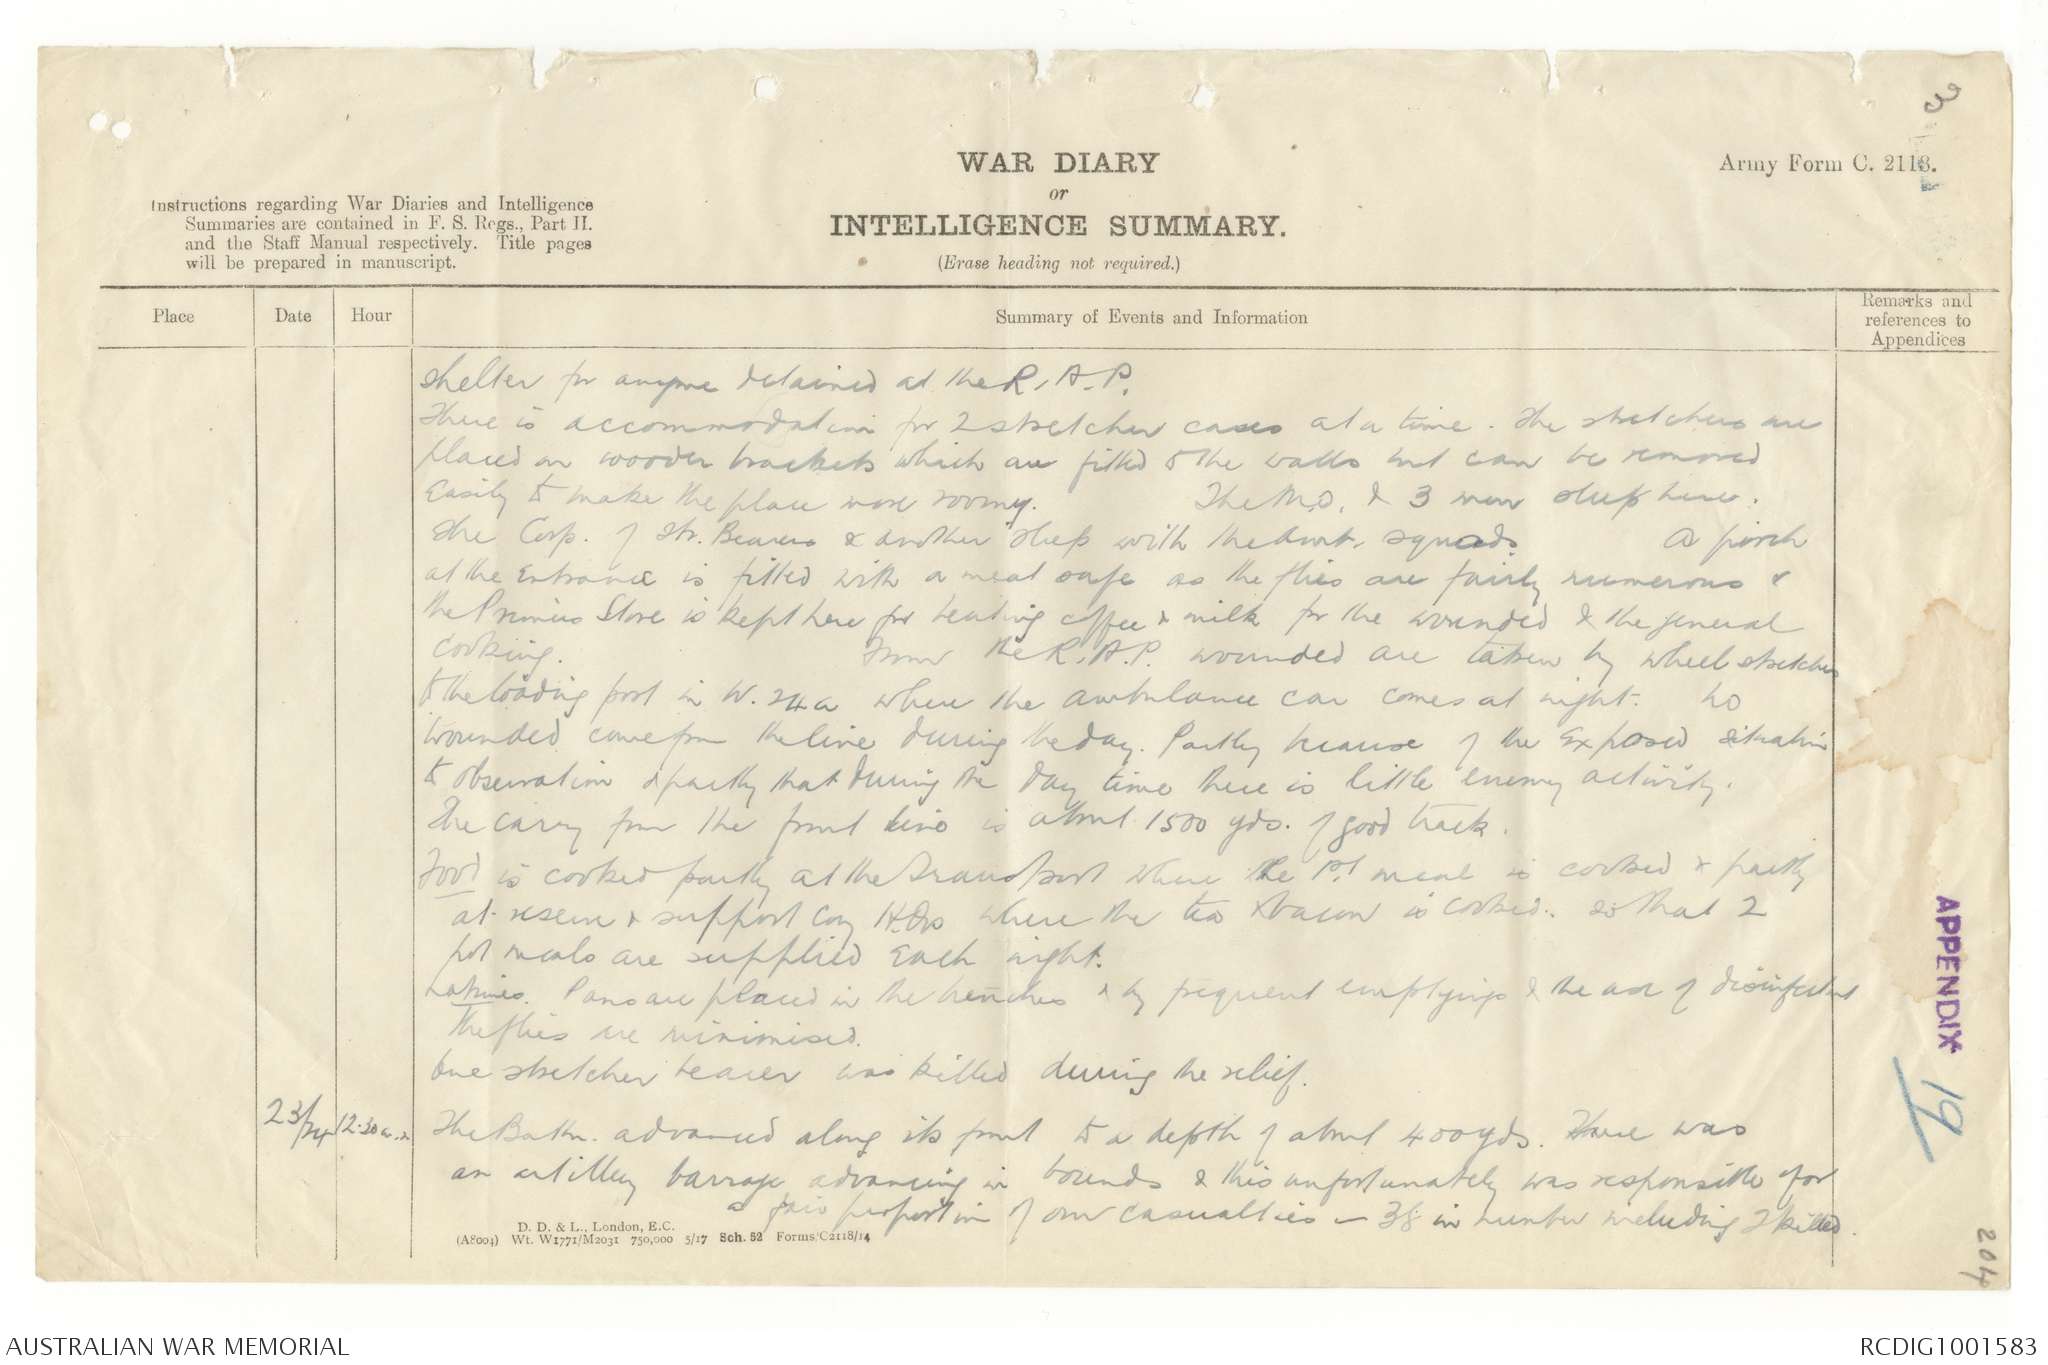 3
WAR DIARY
or
INTELLIGENCE SUMMARY.
(Erase heading not required.)
Army Form C. 2118.
Instructions regarding War Diaries and Intelligence
Summaries are contained in F. S. Regs., Part II.
and the Staff Manual respectively. Title pages
will be prepared in manuscript.
Place
Date
Hour
Summary of Events and Information
Remarks and
references to
Appendices
shelter for anyone detained at the R.A.P.
There is accommodation for 2 stretcher cases at a time. The stretchers are
placed on wooden brackets which are fitted to the walls but can be removed
Easily to make the place more roomy. The M.O. & 3 men sleep here.
The Corp. of Str. Bearers & another sleep with the Amb. squads. A porch
at the Entrance is fitted with a meat safe as the flies are fairly numerous &
the Primus Stove is kept here for heating coffee & milk for the wounded & the general
cooking. From the R.A.P. wounded are taken by wheel stretcher
to the loading post in W.24a where the ambulance car comes at night. No
wounded come from the line during the day. Partly because of the Exposed situation
to observation & partly that during the day time there is little enemy activity.
The carry from the front line is about 1500 yds. of good track.
Food is cooked partly at the transport where the pt meal is cooked & partly
at reserve & support Coy H.Qrs where the tea & bacon is cooked. so that 2
hot meals are supplied Each night.
Latrines. Pans are placed in the trenches & by frequent emptyings & the use of disinfectant
the flies are minimised.
One stretcher bearer was killed during the relief.
23/ 12.30 a.m. The Battn. advanced along its front to a depth of about 400 yds. There was
an artillery barrage advancing in bounds & this unfortunately was responsible for
a fair proportion of our casualties – 38 in number including 2 killed.
D. D. & L., London, E.C.
(A8004) Wt. W1771/M2031 750,000 5/17 Sch. 52 Forms/C2118/14
APPENDIX
19
204
AUSTRALIAN WAR MEMORIAL
RCDIG1001583